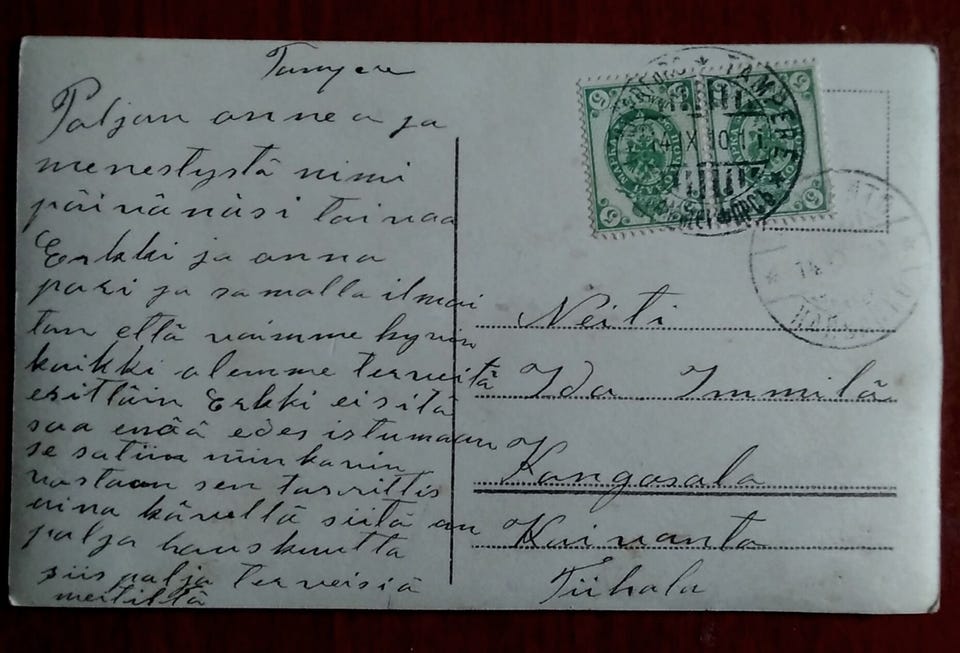 Tampere
Paljon onnea ja
menestystä nimi
päivänäsi toivoo
Erkki ja anna
pari ja samalla ilmoi
tan että voimme hyvin
kaikki olemme terveitä
erittäin Erkki ei sitä
saa enää edes istumaan
se
vastaan sen tarvittis
aina kävellä siitä on
palja hauskuutta
siis palja terveisiä
meiltiltä
TAMPERE
14 X 10
5
5
5
5
Neiti
Ida Immilä
Kangasala
Kaivanta
Tiihala